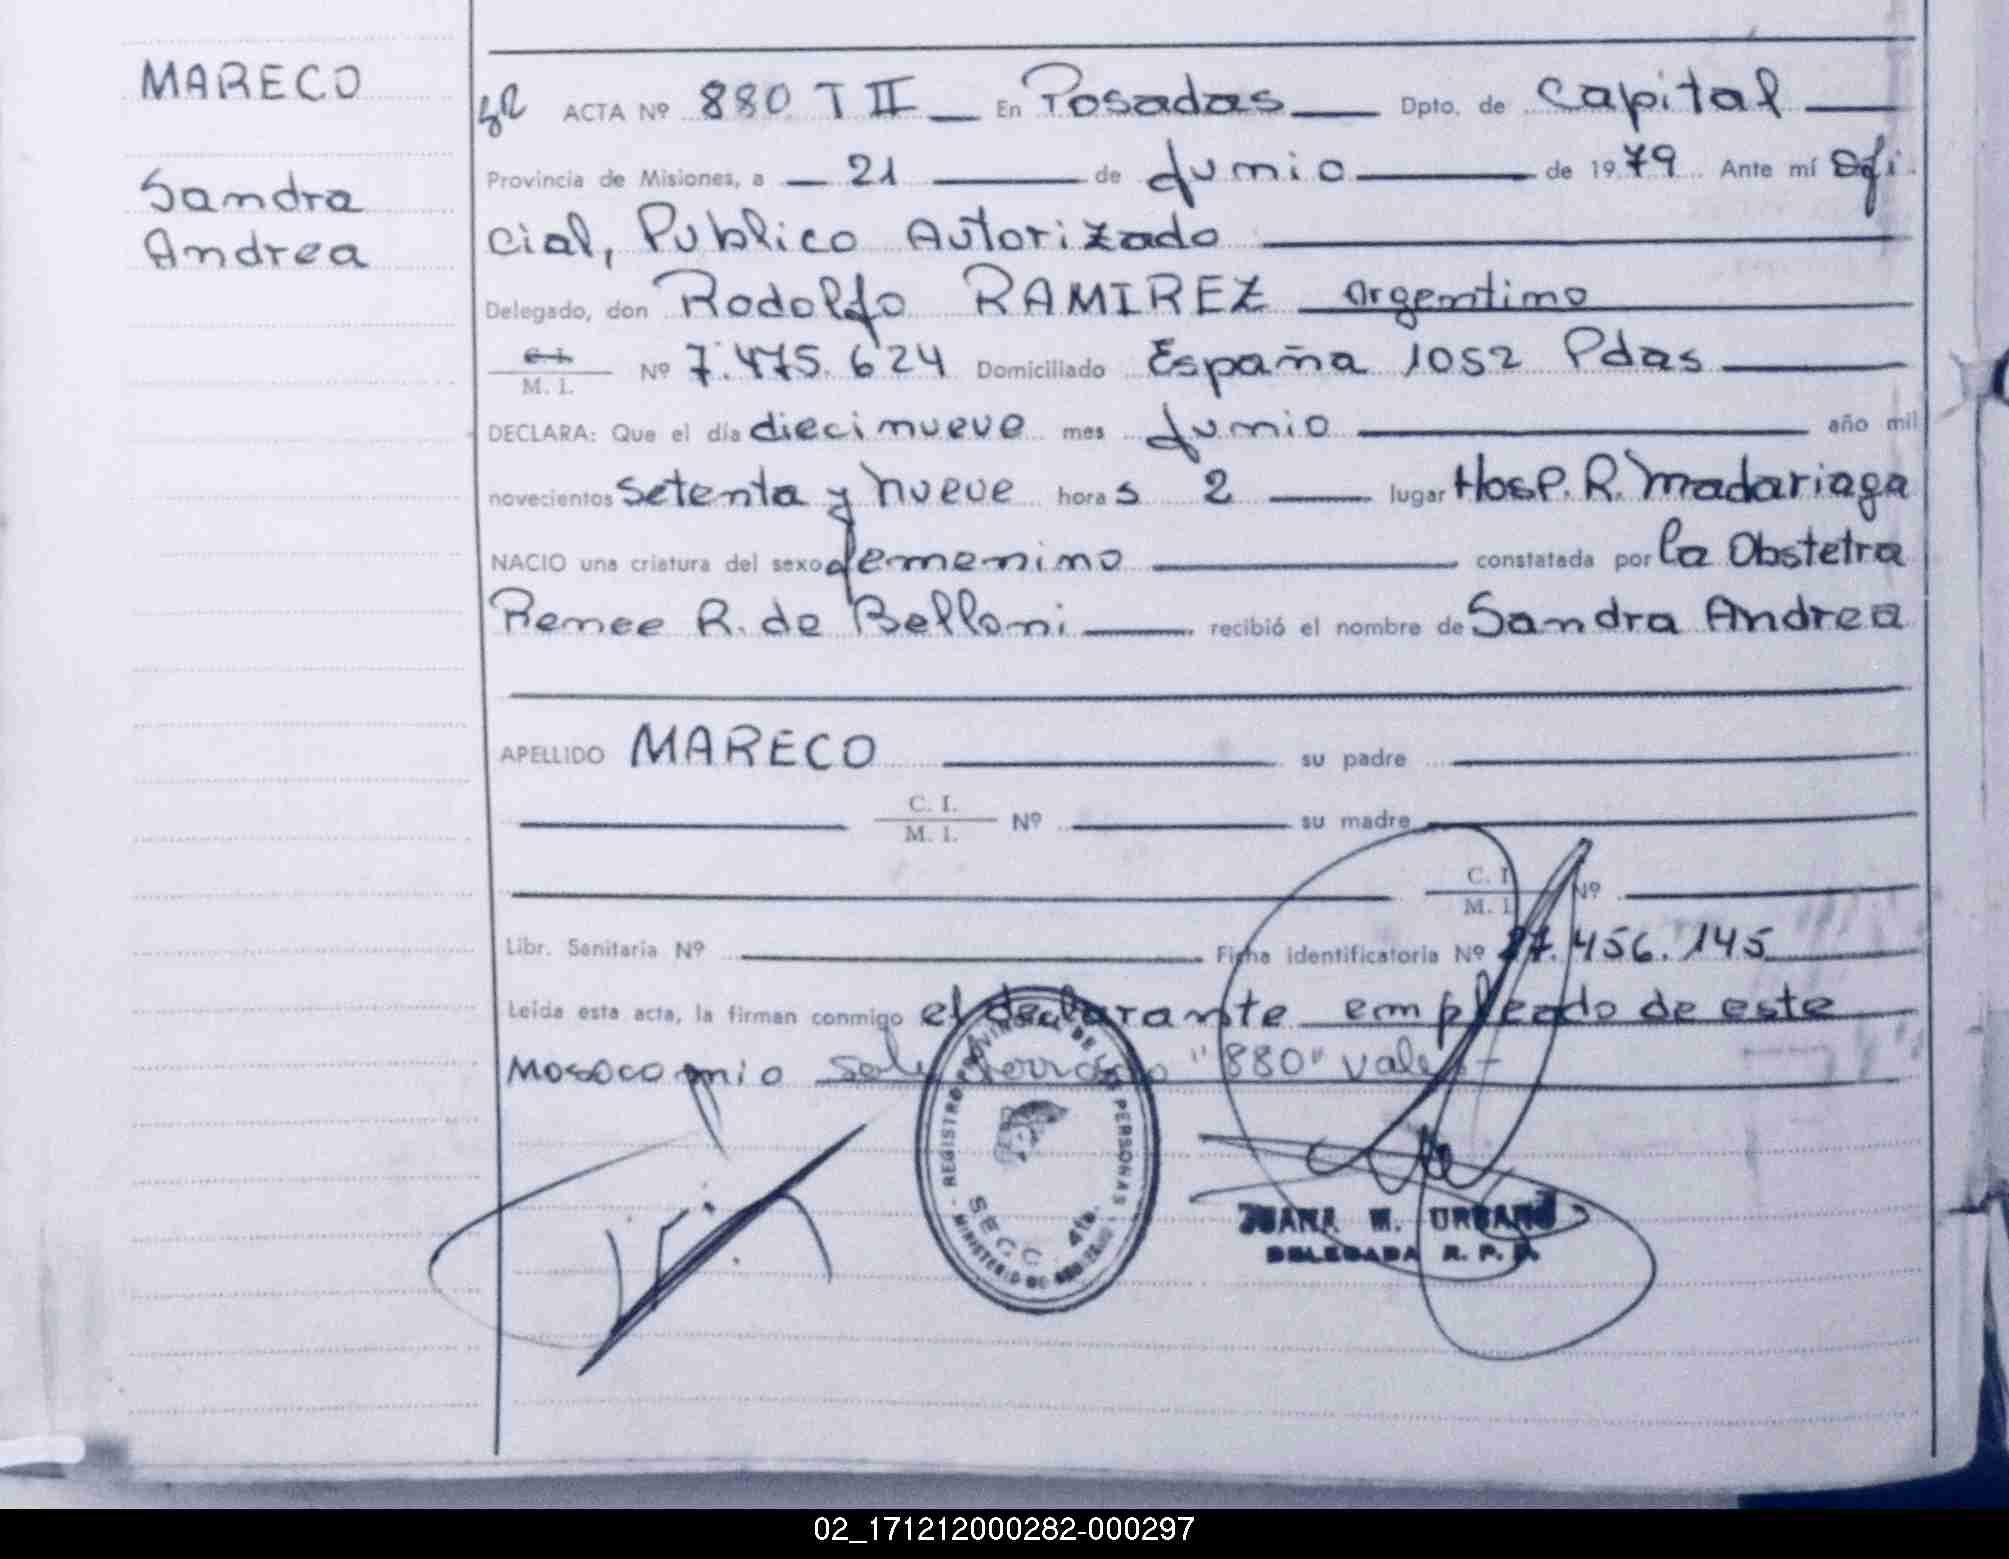 MARECO
Sandra
Andrea
ACTA Nº 880 T II En Posadas Dpto. de Capital
Provincia de Misiones, a 21 de Junio de 1979 Ante mí Ofi
cial, Publico Autorizado
Delegado, don Rodolfo RAMIREZ argentino
C. I.
M. I. Nº 7.475.624 Domiciliado España 1052 Pdas
DECLARA: Que el día diecinueve mes Junio año mil
novecientos setenta y nueve hora s 2 lugar Hosp. R. Madariaga
NACIO una criatura del sexo femenino constatada por la Obstetra
Renee R. de Belloni recibió el nombre de Sandra Andrea
APELLIDO MARECO su padre
C. I.
M. I. Nº su madre
C. I.
M. I. Nº
Libr. Sanitaria Nº Ficha identificatoria Nº 27.456.145
Leída esta acta, la firman conmigo el declarante empleado de este
Mosocomio "880" vale
REGISTRO PROVINCIAL DE LAS PERSONAS
MINISTERIO DE
SECC. 4ta.
JUANA M. URBANO
DELEGADA R. P. P.
02_171212000282-000297